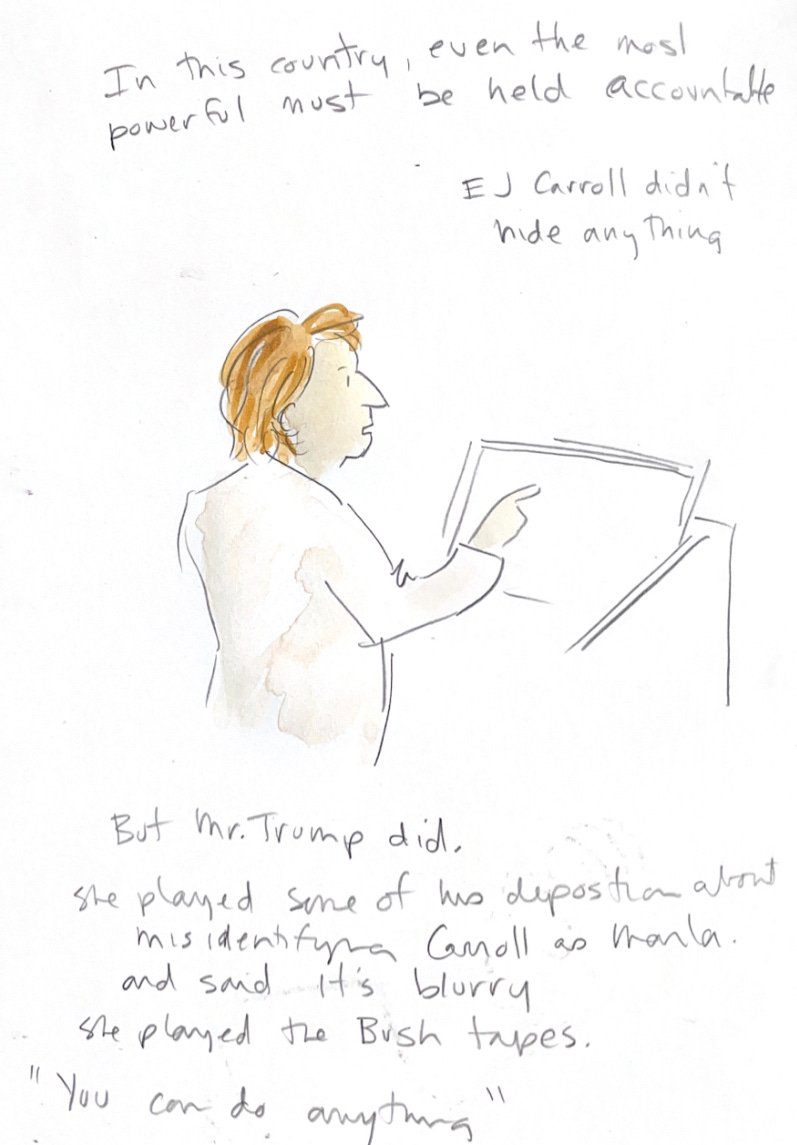 In this country, even the most
powerful must be held accountable
EJ Carroll didn't
hide anything
But Mr. Trump did.
she played some of his deposition about
misidentifying Carroll as Marla.
and said it's blurry
she played the Bush tapes.
"You can do anything"